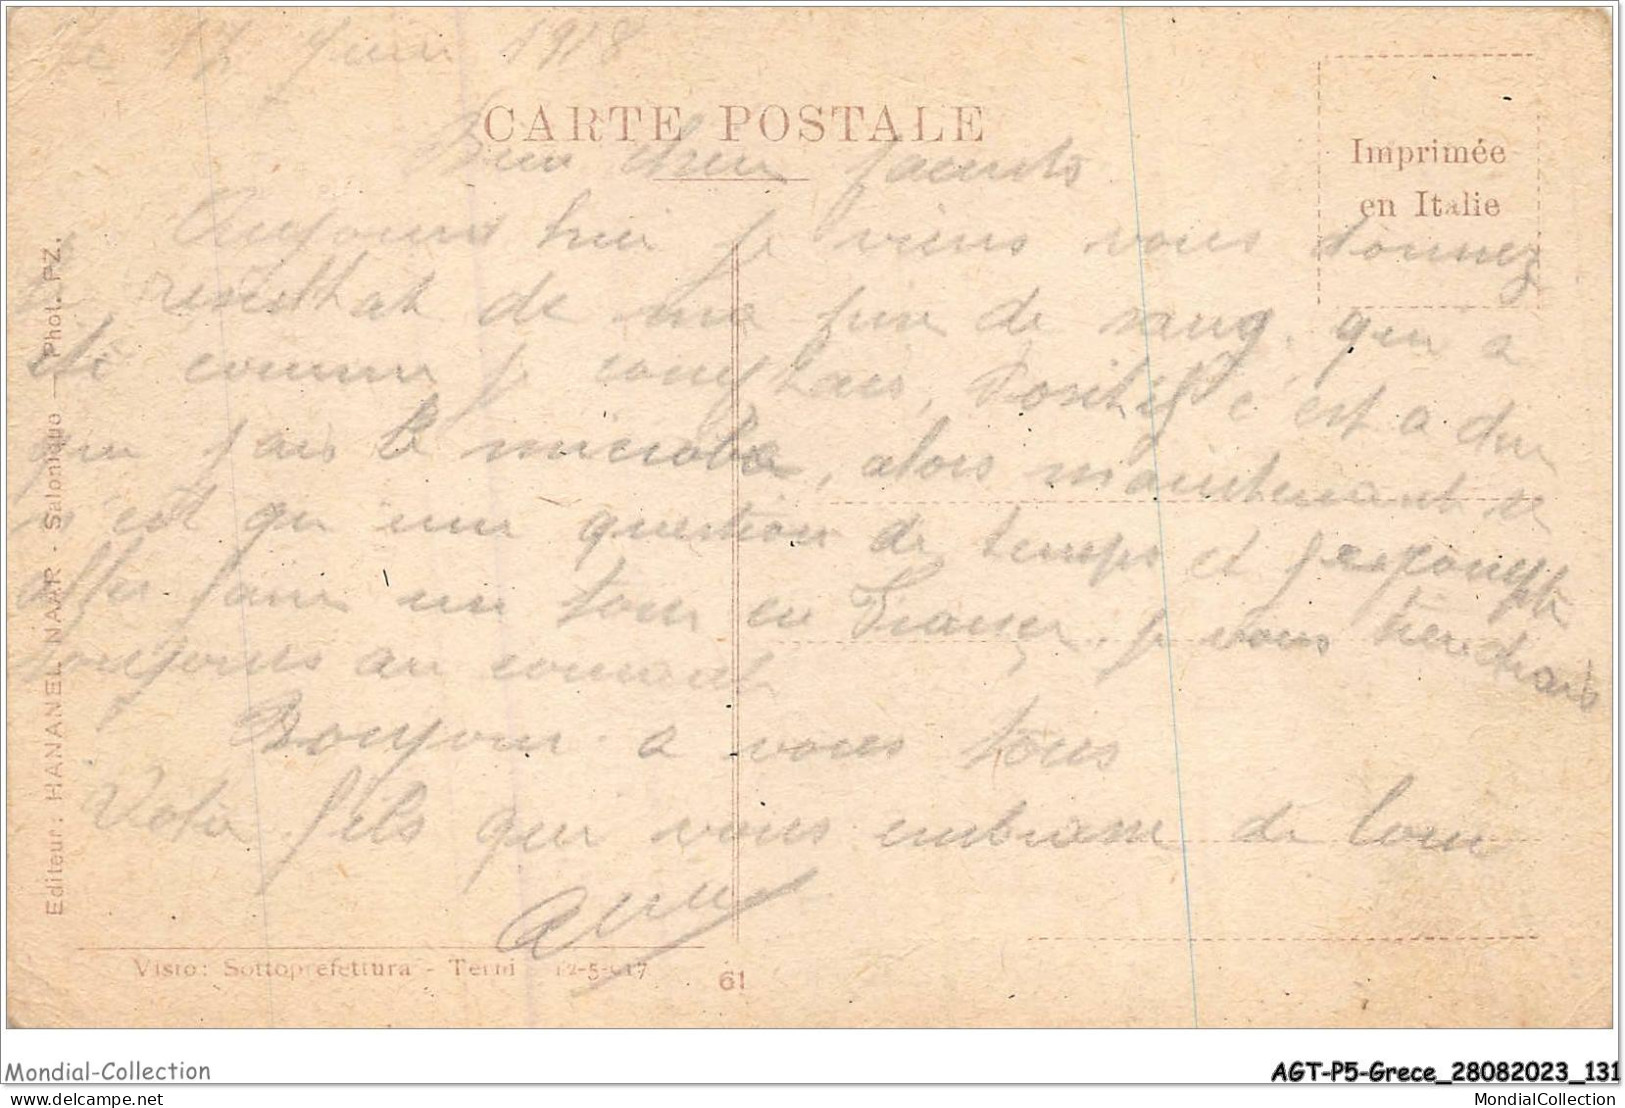 Le 17 Juin 1918
CARTE POSTALE
Imprimée
en Italie
Bien cher parents
Aujourd hui je viens vous donnez
le resultat de ma prise de sang, qui a
été comme je comptais, Positif c'est a dire
que j'ais le microbe, alors maintenant ce
n'est qu une question de temps et
aller faire un tour en France. Je vous tiendrais
toujours au courant
Bonjour a vous tous
Votre fils qui vous embrasse de loin
Editeur: HANANEL NAAR - Salonique - Phot. PZ.
Visto: Sottoprefettura - Terni 12-5-917
61
Mondial-Collection
AGT-P5-Grece_28082023_131
delcampe.net
MondialCollection